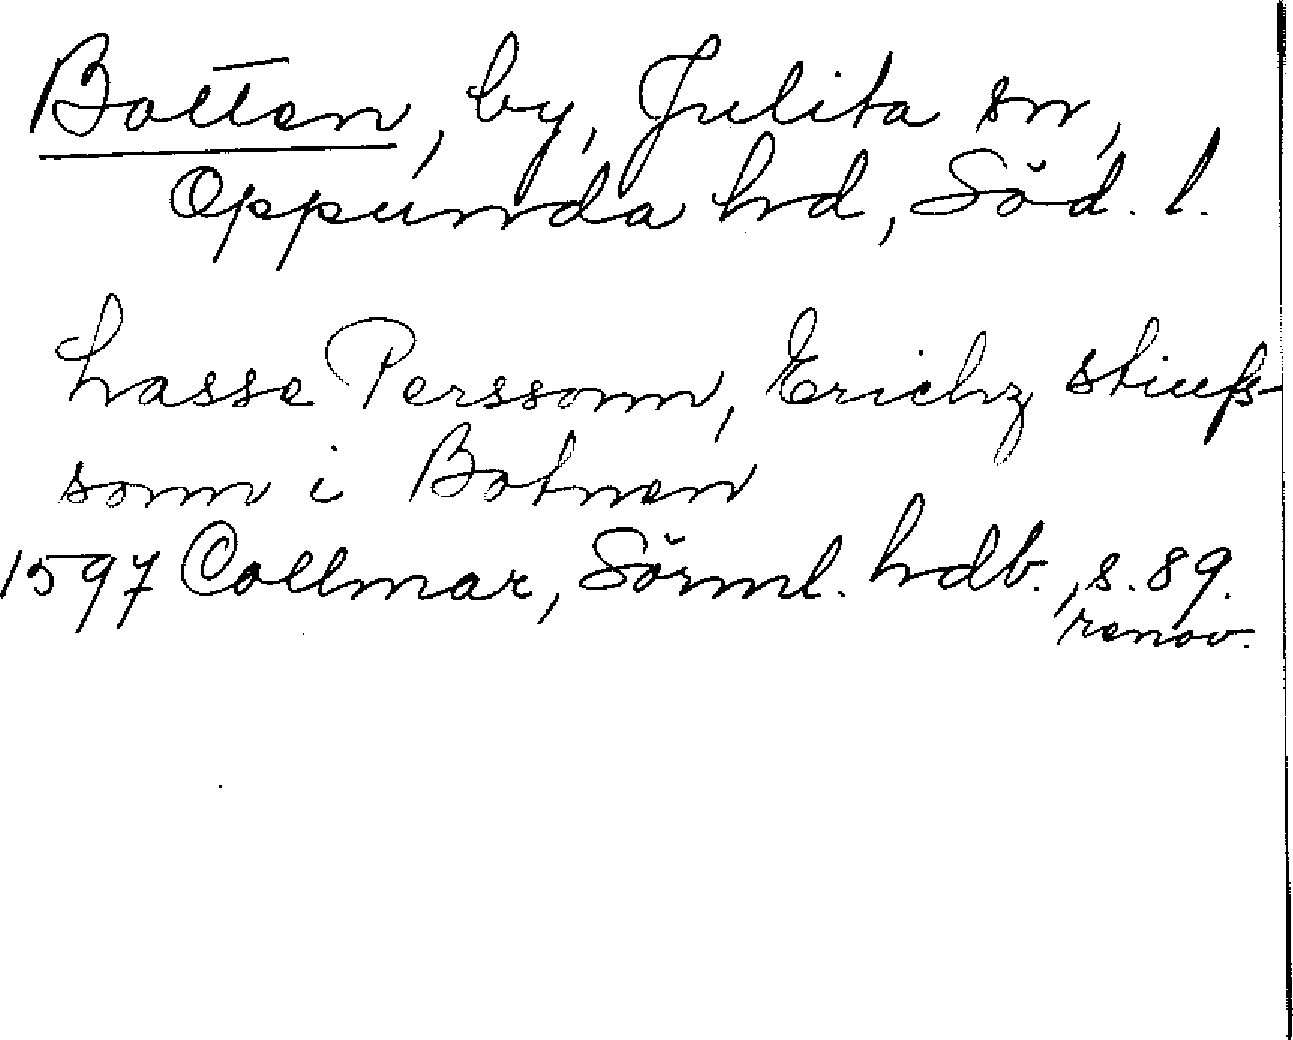 Botten, by, Julita sn,
Oppunda hd, Söd. l.
Lasse Perssonn, Erichz stiufß-
sonn i Botnen
1597 Collmar, Sörml. hdb., s. 89.
renov.